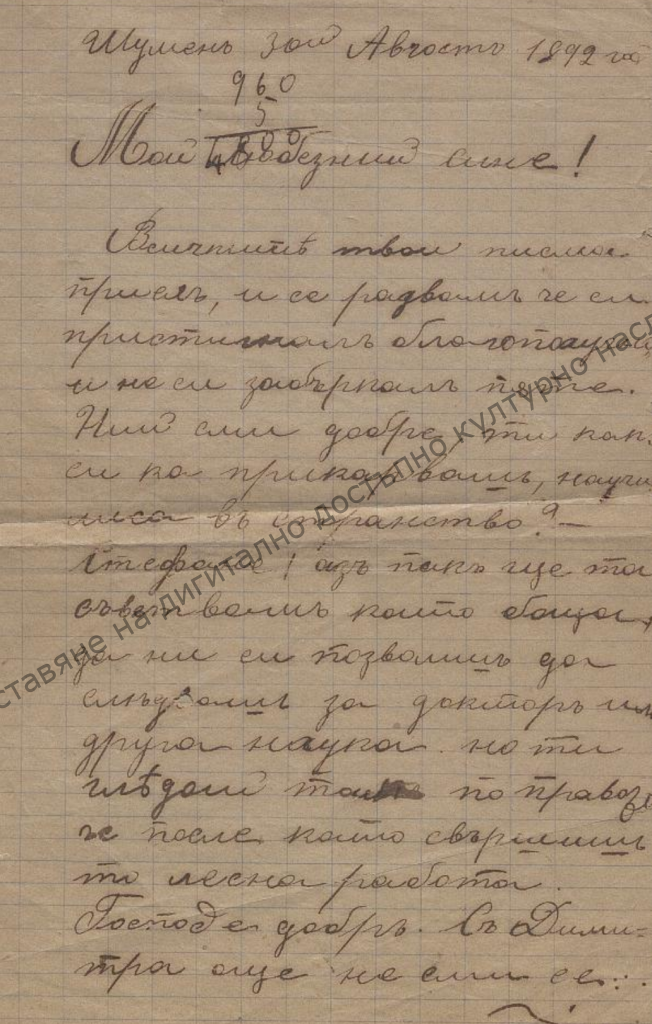 Шуменъ 3ой Августъ 1892 год
960
5
4800
Мой любезний сине!
Всичкитѣ твои писма
приехъ, и се радвамъ че си
пристигналъ благополучно
и не си забъркалъ пътя.
Ний сми добре, ти как
си ка прикарвашъ, научи
лиса въ странство? –
Стефане! азъ пакъ ще та
съветвамъ като баща,
да ни си позволишъ да
слѣдвашъ за докторъ или
друга наука. но ти
глѣдай по право
че после като свършишъ
то лесна работа.
Господ е добръ. Съ Дими-
тра още не сми се
ставяне на дигитално достъпно културно насл